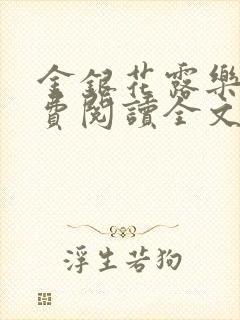 金銀花露樂
費閱讀全文
浮生若狗